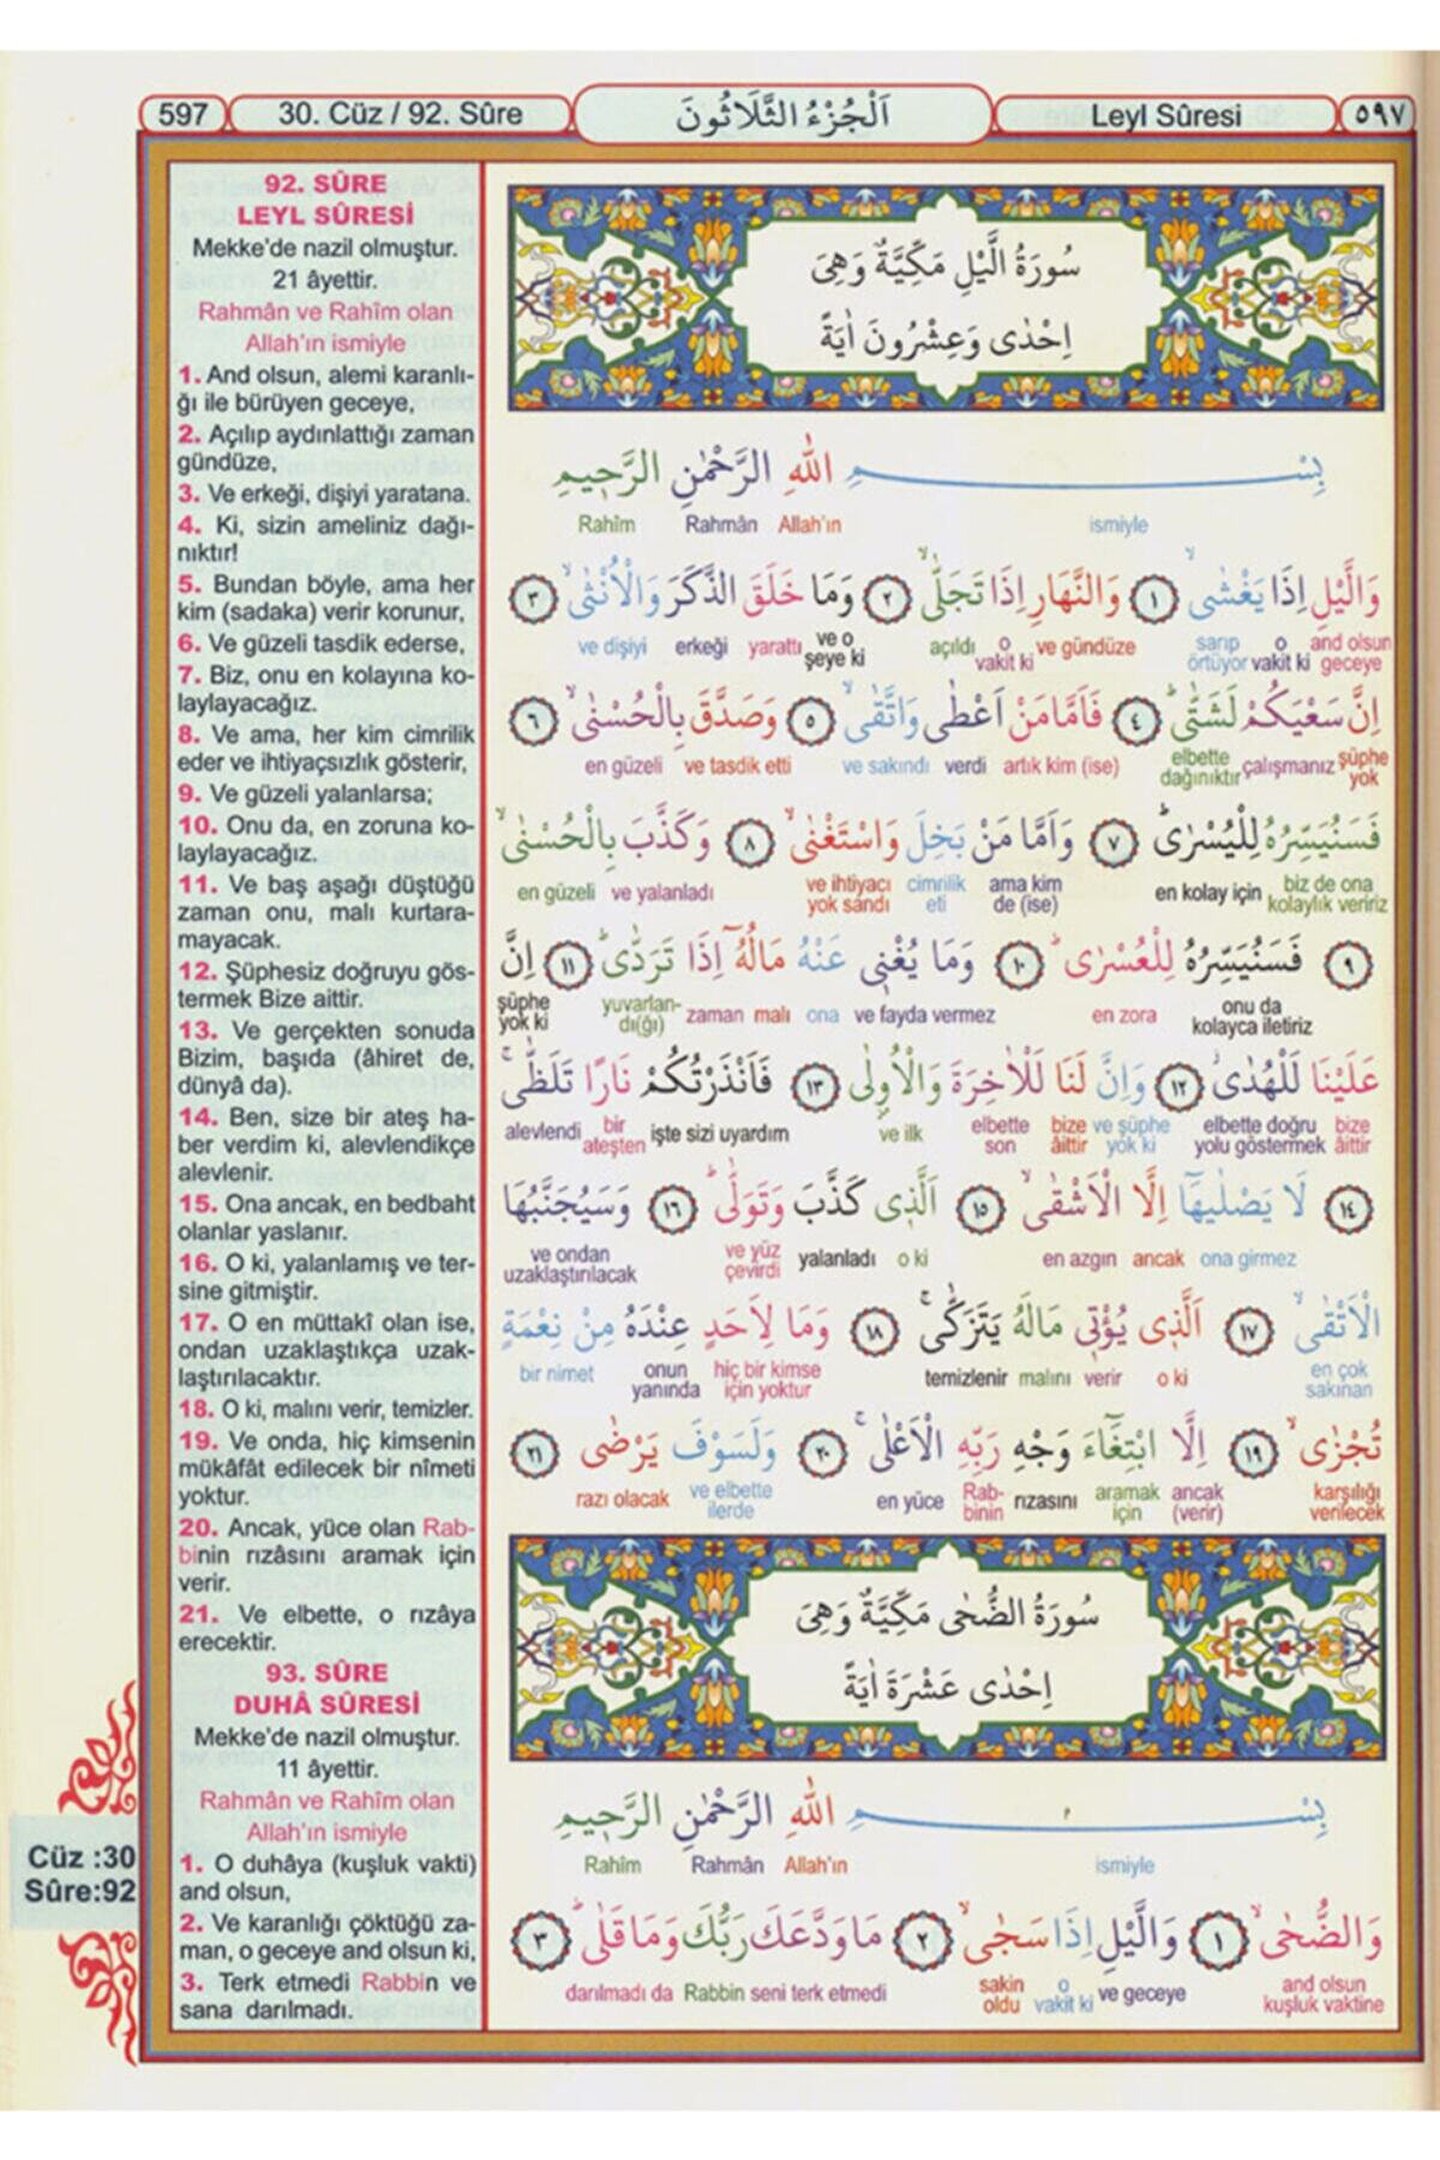 597
30. Cüz / 92. Sûre
اَلْجُزْءُ الثَّلَاثُونَ
Leyl Sûresi
٥٩٧
92. SÛRE
LEYL SÛRESİ
Mekke'de nazil olmuştur.
21 âyettir.
Rahmân ve Rahîm olan
Allah'ın ismiyle
1. And olsun, alemi karanlı-
ğı ile bürüyen geceye,
2. Açılıp aydınlattığı zaman
gündüze,
3. Ve erkeği, dişiyi yaratana.
4. Ki, sizin ameliniz dağı-
nıktır!
5. Bundan böyle, ama her
kim (sadaka) verir korunur,
6. Ve güzeli tasdik ederse,
7. Biz, onu en kolayına ko-
laylayacağız.
8. Ve ama, her kim cimrilik
eder ve ihtiyaçsızlık gösterir,
9. Ve güzeli yalanlarsa;
10. Onu da, en zoruna ko-
laylayacağız.
11. Ve baş aşağı düştüğü
zaman onu, malı kurtara-
mayacak.
12. Şüphesiz doğruyu gös-
termek Bize aittir.
13. Ve gerçekten sonuda
Bizim, başıda (âhiret de,
dünyâ da).
14. Ben, size bir ateş ha-
ber verdim ki, alevlendikçe
alevlenir.
15. Ona ancak, en bedbaht
olanlar yaslanır.
16. O ki, yalanlamış ve ter-
sine gitmiştir.
17. O en müttakî olan ise,
ondan uzaklaştıkça uzak-
laştırılacaktır.
18. O ki, malını verir, temizler.
19. Ve onda, hiç kimsenin
mükâfât edilecek bir nîmeti
yoktur.
20. Ancak, yüce olan Rab-
binin rızâsını aramak için
verir.
21. Ve elbette, o rızâya
erecektir.
93. SÛRE
DUHÂ SÛRESİ
Mekke'de nazil olmuştur.
11 âyettir.
Rahmân ve Rahîm olan
Allah'ın ismiyle
1. O duhâya (kuşluk vakti)
and olsun,
2. Ve karanlığı çöktüğü za-
man, o geceye and olsun ki,
3. Terk etmedi Rabbin ve
sana darılmadı.
سُورَةُ الَّيْلِ مَكِّيَّةٌ وَهِىَ
اِحْدٰى وَعِشْرُونَ اٰيَةً
بِسْمِ اللّٰهِ الرَّحْمٰنِ الرَّحِيمِ
ismiyle Allah'ın Rahmân Rahîm
وَالَّيْلِ اِذَا يَغْشٰىۙ ١ وَالنَّهَارِ اِذَا تَجَلّٰىۙ ٢ وَمَا خَلَقَ الذَّكَرَ وَالْاُنْثٰىۙ ٣
and olsun geceye o vakit ki sarıp örtüyor ve gündüze o vakit ki açıldı ve o şeye ki yarattı erkeği ve dişiyi
اِنَّ سَعْيَكُمْ لَشَتّٰىۜ ٤ فَاَمَّا مَنْ اَعْطٰى وَاتَّقٰىۙ ٥ وَصَدَّقَ بِالْحُسْنٰىۙ ٦
şüphe yok çalışmanız elbette dağınıktır artık kim (ise) verdi ve sakındı ve tasdik etti en güzeli
فَسَنُيَسِّرُهُ لِلْيُسْرٰىۜ ٧ وَاَمَّا مَنْ بَخِلَ وَاسْتَغْنٰىۙ ٨ وَكَذَّبَ بِالْحُسْنٰىۙ
biz de ona kolaylık veririz en kolay için ama kim de (ise) cimrilik eti ve ihtiyacı yok sandı ve yalanladı en güzeli
٩ فَسَنُيَسِّرُهُ لِلْعُسْرٰىۜ ١٠ وَمَا يُغْنِى عَنْهُ مَالُهُٓ اِذَا تَرَدّٰىۜ ١١ اِنَّ
onu da kolayca iletiriz en zora ve fayda vermez ona malı zaman yuvarlan-dı(ğı) şüphe yok ki
عَلَيْنَا لَلْهُدٰىۘ ١٢ وَاِنَّ لَنَا لَلْاٰخِرَةَ وَالْاُولٰى ١٣ فَاَنْذَرْتُكُمْ نَارًا تَلَظّٰىۚ
bize âittir elbette doğru yolu göstermek ve şüphe yok ki bize âittir elbette son ve ilk işte sizi uyardım bir ateşten alevlendi
١٤ لَا يَصْلٰيهَٓا اِلَّا الْاَشْقٰىۙ ١٥ اَلَّذِى كَذَّبَ وَتَوَلّٰىۜ ١٦ وَسَيُجَنَّبُهَا
ona girmez ancak en azgın o ki yalanladı ve yüz çevirdi ve ondan uzaklaştırılacak
الْاَتْقٰىۙ ١٧ اَلَّذِى يُؤْتِى مَالَهُ يَتَزَكّٰىۚ ١٨ وَمَا لِاَحَدٍ عِنْدَهُ مِنْ نِعْمَةٍ
en çok sakınan o ki verir malını temizlenir hiç bir kimse için yoktur onun yanında bir nimet
تُجْزٰىۙ ١٩ اِلَّا ابْتِغَٓاءَ وَجْهِ رَبِّهِ الْاَعْلٰىۚ ٢٠ وَلَسَوْفَ يَرْضٰى ٢١
karşılığı verilecek ancak (verir) aramak için rızasını Rab-binin en yüce ve elbette ilerde razı olacak
سُورَةُ الضُّحٰى مَكِّيَّةٌ وَهِىَ
اِحْدٰى عَشْرَةَ اٰيَةً
بِسْمِ اللّٰهِ الرَّحْمٰنِ الرَّحِيمِ
ismiyle Allah'ın Rahmân Rahîm
وَالضُّحٰىۙ ١ وَالَّيْلِ اِذَا سَجٰىۙ ٢ مَا وَدَّعَكَ رَبُّكَ وَمَا قَلٰىۜ ٣
and olsun kuşluk vaktine ve geceye o vakit ki sakin oldu seni terk etmedi Rabbin darılmadı da
Cüz :30
Sûre:92